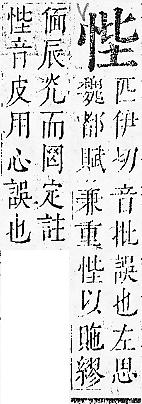 悂
匹伊切音批誤也左思
魏都賦兼重悂以貤繆
偭辰光而罔定註
悂音皮用心誤也